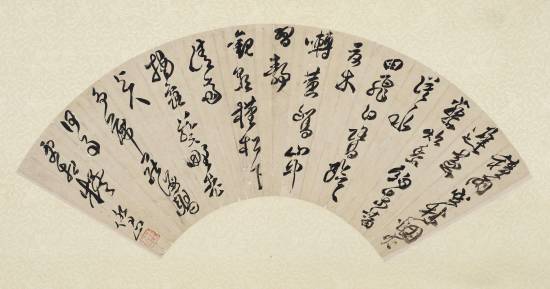 積雨空林烟火
遲蒸
藜炊黍餉東菑
漠〻水
田飛白鷺陰〻
夏木
囀黃鸝山中
習靜
觀朝槿松下
清齋
折露葵野老
與人
爭席罷海鷗
何事
更相疑